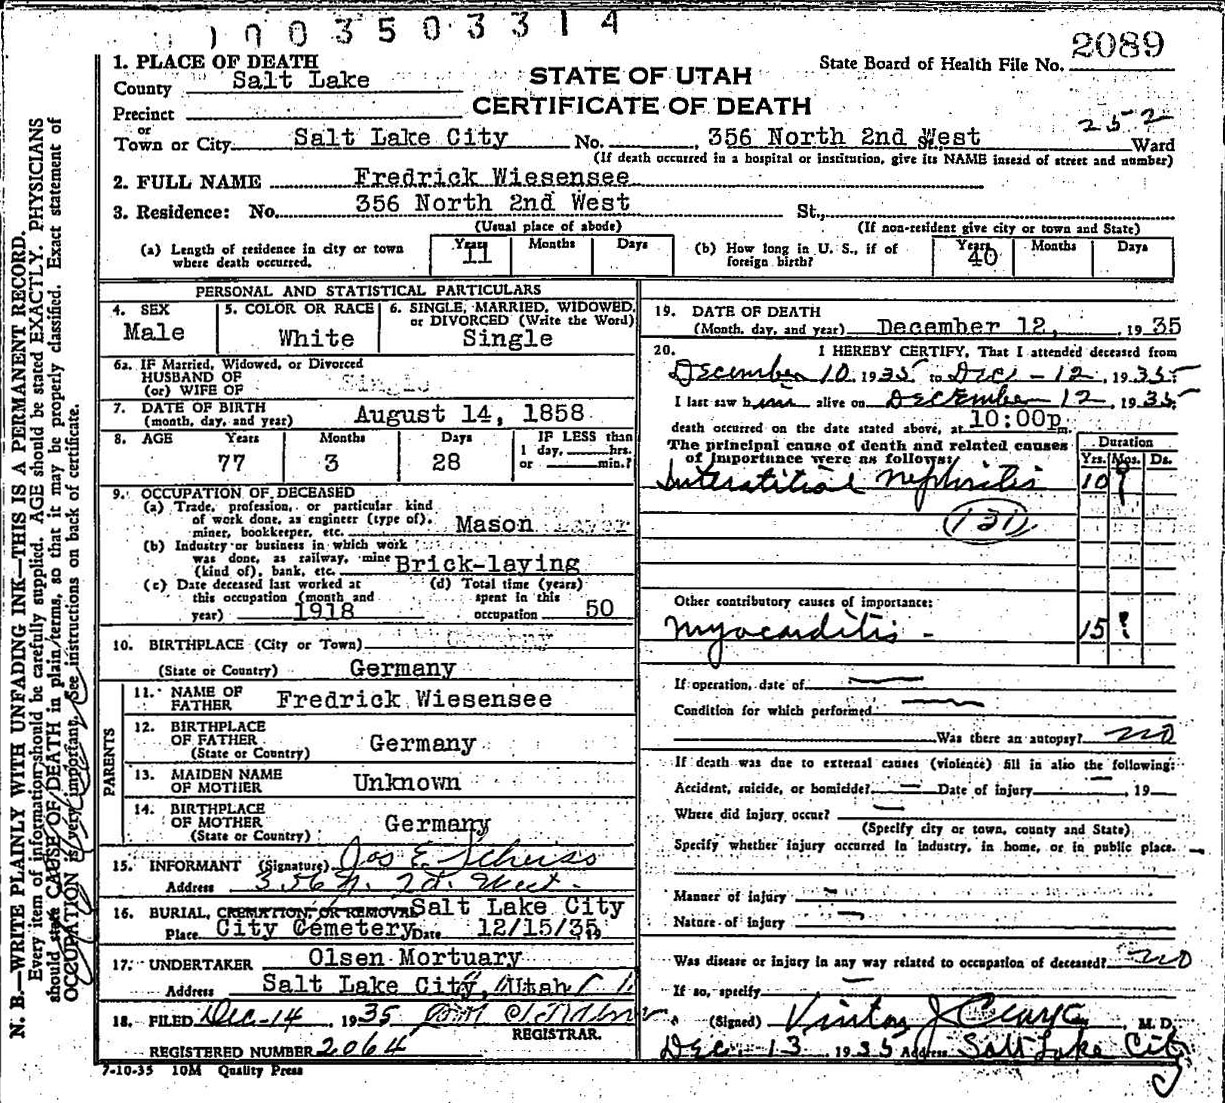 1003503314
2089
State Board of Health File No.
1. PLACE OF DEATH
County Salt Lake
STATE OF UTAH
CERTIFICATE OF DEATH
Precinct
or
Town or City Salt Lake City No. 356 North 2nd West 252 Ward
(If death occurred in a hospital or institution, give its NAME insead of street and number)
2. FULL NAME Fredrick Wiesensee
3. Residence: No. 356 North 2nd West St.,
(Usual place of abode) (If non-resident give city or town and State)
(a) Length of residence in city or town where death occurred. Years 11 Months Days
(b) How long in U. S., if of foreign birth? Years 40 Months Days
PERSONAL AND STATISTICAL PARTICULARS
4. SEX Male
5. COLOR OR RACE White
6. SINGLE, MARRIED, WIDOWED, or DIVORCED (Write the Word) Single
6a. IF Married, Widowed, or Divorced
HUSBAND OF
(or) WIFE OF Single
7. DATE OF BIRTH
(month, day, and year) August 14, 1858
8. AGE Years 77 Months 3 Days 28 IF LESS than 1 day, hrs. or min.?
9. OCCUPATION OF DECEASED
(a) Trade, profession, or particular kind
of work done, as engineer (type of),
miner, bookkeeper, etc. Mason
(b) Industry or business in which work
was done, as railway, mine
(kind of), bank, etc. Brick-laying
(c) Date deceased last worked at
this occupation (month and
year) 1918
(d) Total time (years)
spent in this
occupation 50
10. BIRTHPLACE (City or Town)
(State or Country) Germany
PARENTS
11. NAME OF
FATHER Fredrick Wiesensee
12. BIRTHPLACE
OF FATHER
(State or Country) Germany
13. MAIDEN NAME
OF MOTHER Unknown
14. BIRTHPLACE
OF MOTHER
(State or Country) Germany
15. INFORMANT (Signature) Jos E. Scheiss
Address 356 N. 2d. West
16. BURIAL, CREMATION, OR REMOVAL Salt Lake City
Place City Cemetery Date 12/15/35 19
17. UNDERTAKER Olsen Mortuary
Address Salt Lake City, Utah
18. FILED Dec-14 1935
REGISTRAR.
REGISTERED NUMBER 2064
7-10-35 10M Quality Press
19. DATE OF DEATH
(Month, day, and year) December 12, 1935
20. I HEREBY CERTIFY, That I attended deceased from
December 10 1935 to Dec - 12, 1935
I last saw him alive on December 12, 1935
death occurred on the date stated above, at 10:00p m.
The principal cause of death and related causes
of importance were as follows:
Duration
Yrs. Mos. Ds.
Interstitial Nephritis 10 ?
(131)
Other contributory causes of importance:
Myocarditis - 15 ?
If operation, date of
Condition for which performed
Was there an autopsy? no
If death was due to external causes (violence) fill in also the following:
Accident, suicide, or homicide? Date of injury , 19
Where did injury occur?
(Specify city or town, county and State)
Specify whether injury occurred in industry, in home, or in public place.
Manner of injury
Nature of injury
Was disease or injury in any way related to occupation of deceased? no
If so, specify
(Signed) M. D.
Dec. 13 1935 Address Salt Lake City
N. B.—WRITE PLAINLY WITH UNFADING INK—THIS IS A PERMANENT RECORD.
Every item of information should be carefully supplied. AGE should be stated EXACTLY. PHYSICIANS
should state CAUSE OF DEATH in plain terms, so that it may be properly classified. Exact statement of
OCCUPATION is very important. See instructions on back of certificate.